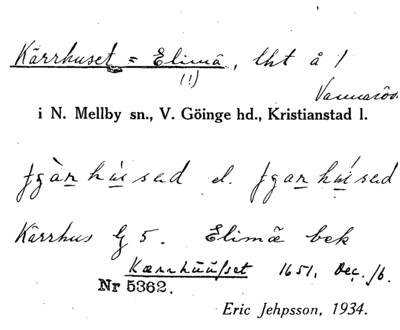 Kärrhuset = Elimä, lht å 1
(!)
Vannaröd
i N. Mellby sn., V. Göinge hd., Kristianstad l.
Kärrhus G 5. Elimä bek
Kærrhuußet 1651, Dec. jb.
Nr 5362.
Eric Jehpsson, 1934.